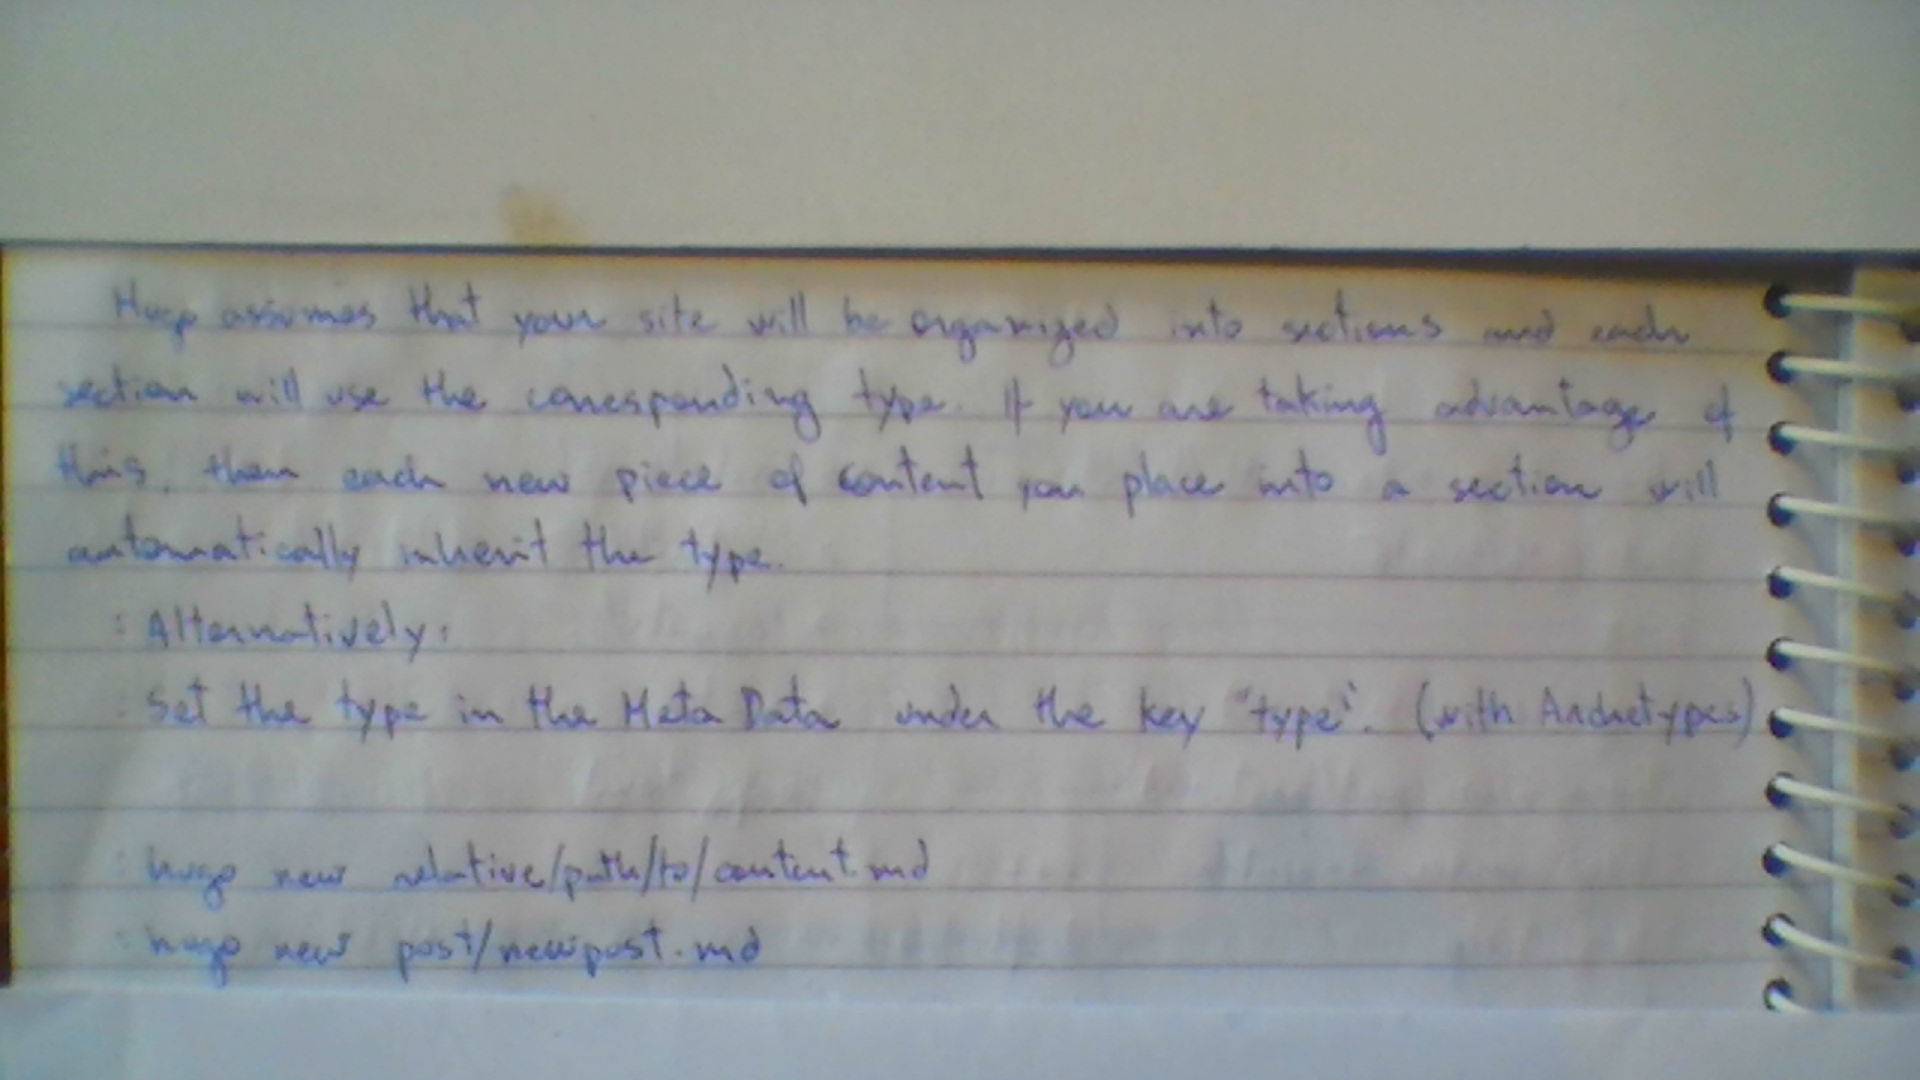 Hugo assumes that your site will be organized into sections and each
section will use the corresponding type. If you are taking advantage of
this, then each new piece of content you place into a section will
automatically inherit the type.
: Alternatively:
: Set the type in the Meta Data under the key "type". (with Archetypes)
: hugo new relative/path/to/content.md
: hugo new post/newpost.md